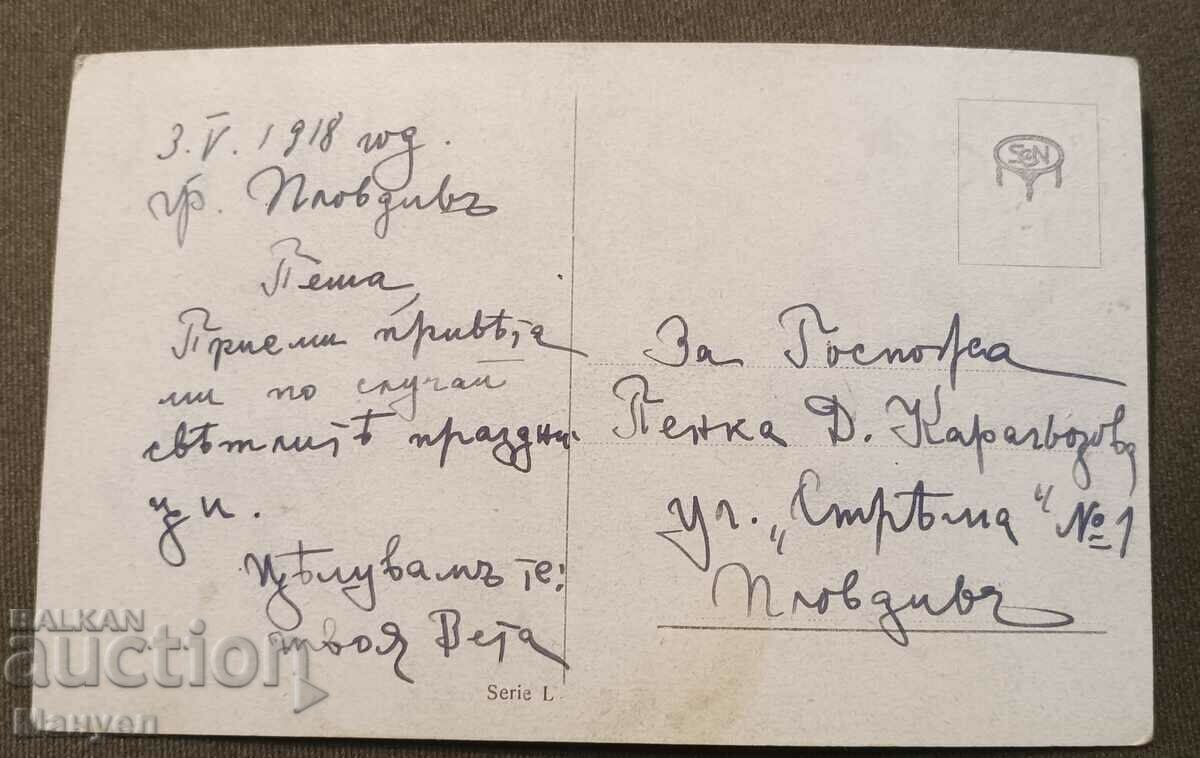 3.V.1918 год.
гр. Пловдивъ
Пеша,
Приеми привѣта
ми по случай
свѣтлитѣ праздни-
ци.
Цѣлувамъ те:
твоя Вета
Serie L
SBN
За Госпожа
Пенка Д. Карагьозова
ул. „Стрѣма“ № 1
Пловдивъ
BALKAN
auction
Мануел